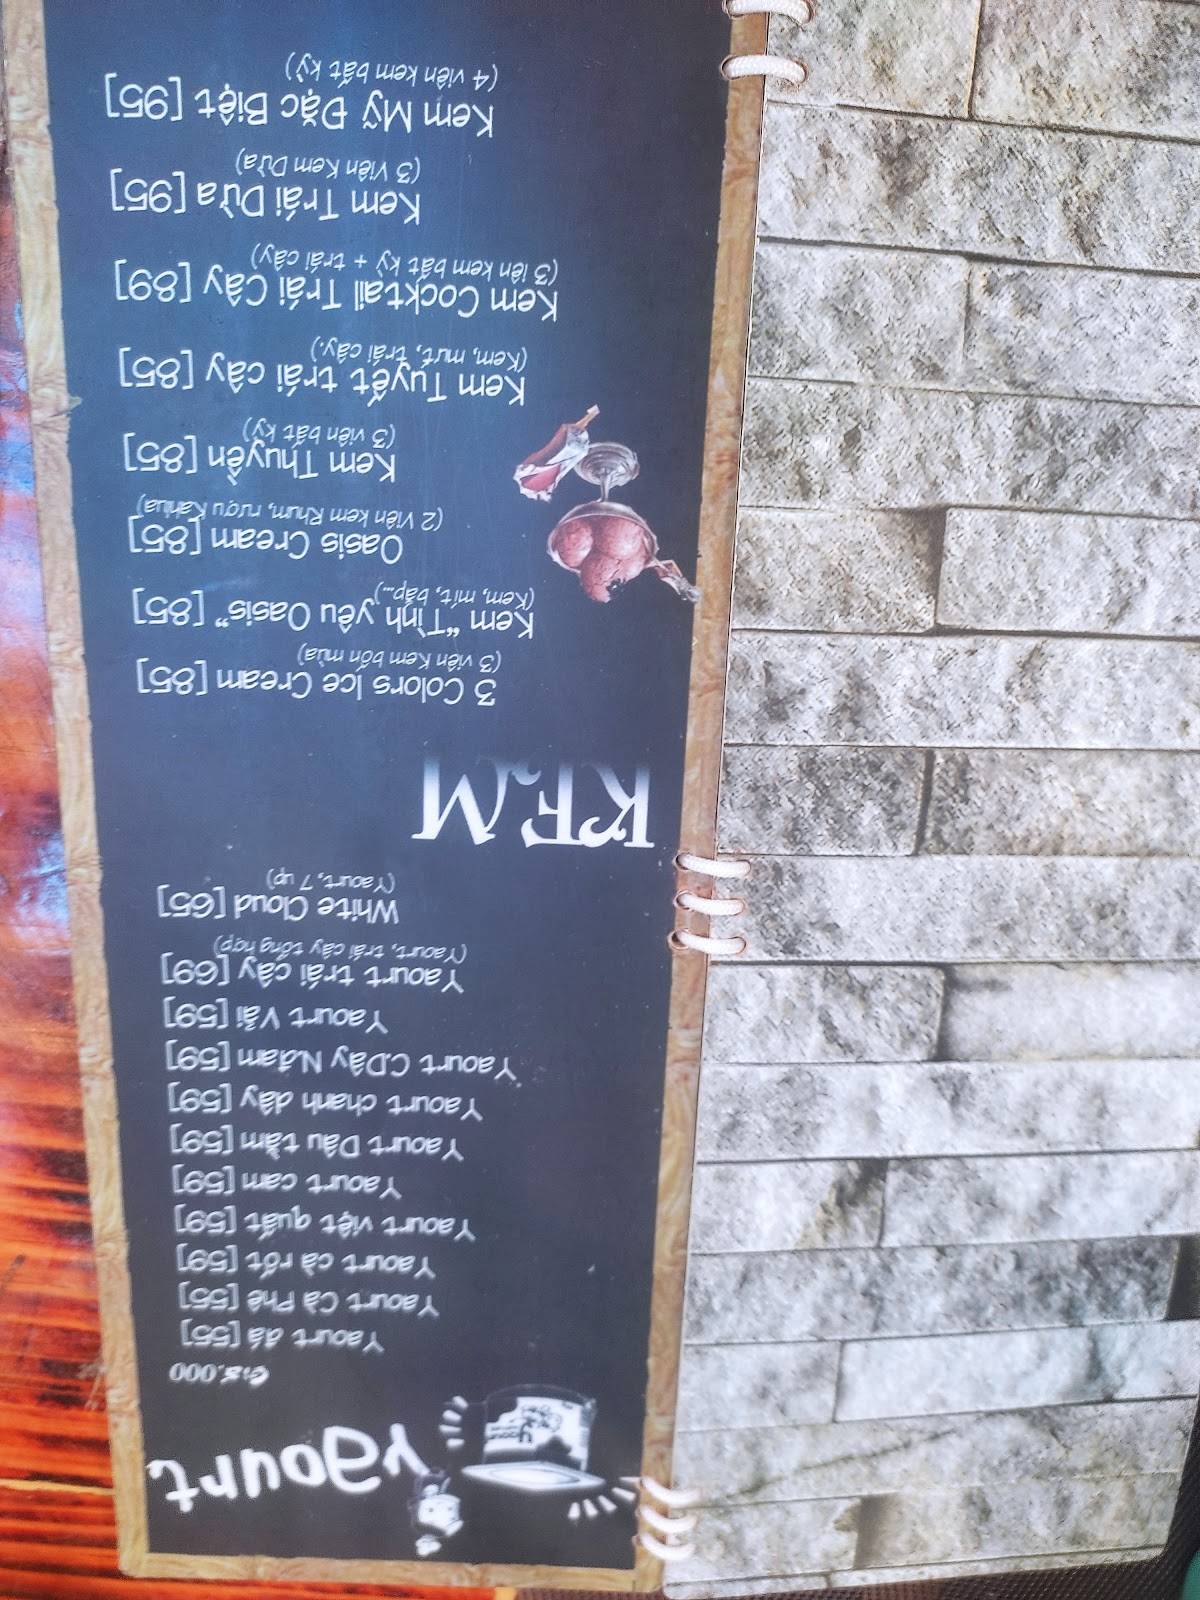 Yaourt
Yaourt đá [55]
Yaourt Cà Phê [55]
Yaourt cà rốt [59]
Yaourt việt quất [59]
Yaourt cam [59]
Yaourt Dâu tằm [59]
Yaourt chanh dây [59]
Yaourt C.Dây N.đam [59]
Yaourt Vải [59]
Yaourt trái cây [69]
(Yaourt, trái cây tổng hợp)
White Cloud [65]
(Yaourt, 7 up)
KEM
3 Colors Ice Cream [85]
(3 viên Kem bốn mùa)
Kem "Tình yêu Oasis" [85]
(Kem, mít, bắp...)
Oasis Cream [85]
(2 Viên kem Rhum, rượu Kahlua)
Kem Thuyền [85]
(3 viên bất kỳ)
Kem Tuyết trái cây [85]
(Kem, mứt, trái cây.)
Kem Cocktail Trái Cây [89]
(3 iên kem bất kỳ + trái cây)
Kem Trái Dừa [95]
(3 Viên Kem Dừa)
Kem Mỹ Đặc Biệt [95]
(4 viên kem bất kỳ)